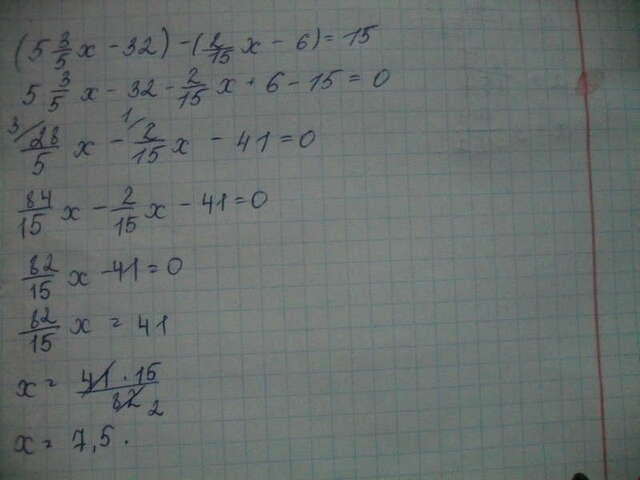 (5 3/5 x - 32) - (2/15 x - 6) = 15
5 3/5 x - 32 - 2/15 x + 6 - 15 = 0
3/ 28/5 x - 1/ 2/15 x - 41 = 0
84/15 x - 2/15 x - 41 = 0
82/15 x - 41 = 0
82/15 x = 41
x = 41 · 15 / 82 2
x = 7,5.